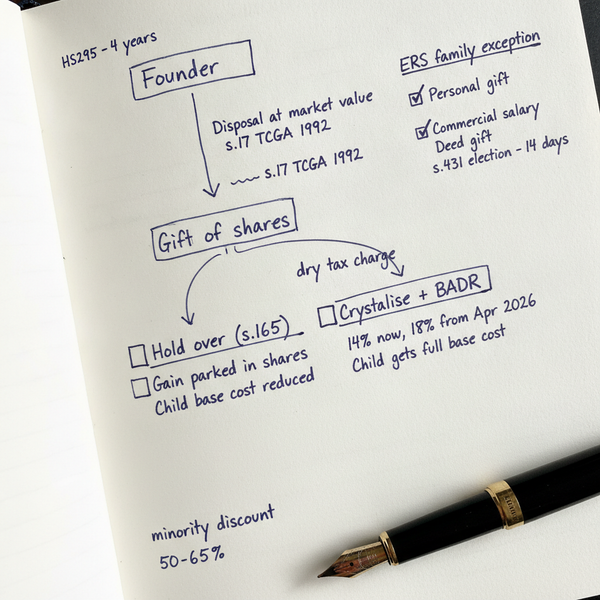 HS295 - 4 years
Founder
Disposal at market value
s.17 TCGA 1992
s.17 TCGA 1992
ERS family exception
Personal gift
Commercial salary
Deed gift
s.431 election - 14 days
Gift of shares
dry tax charge
Hold over (s.165)
Gain parked in shares
Child base cost reduced
Crystalise + BADR
14% now, 18% from Apr 2026
Child gets full base cost
minority discount
50-65%